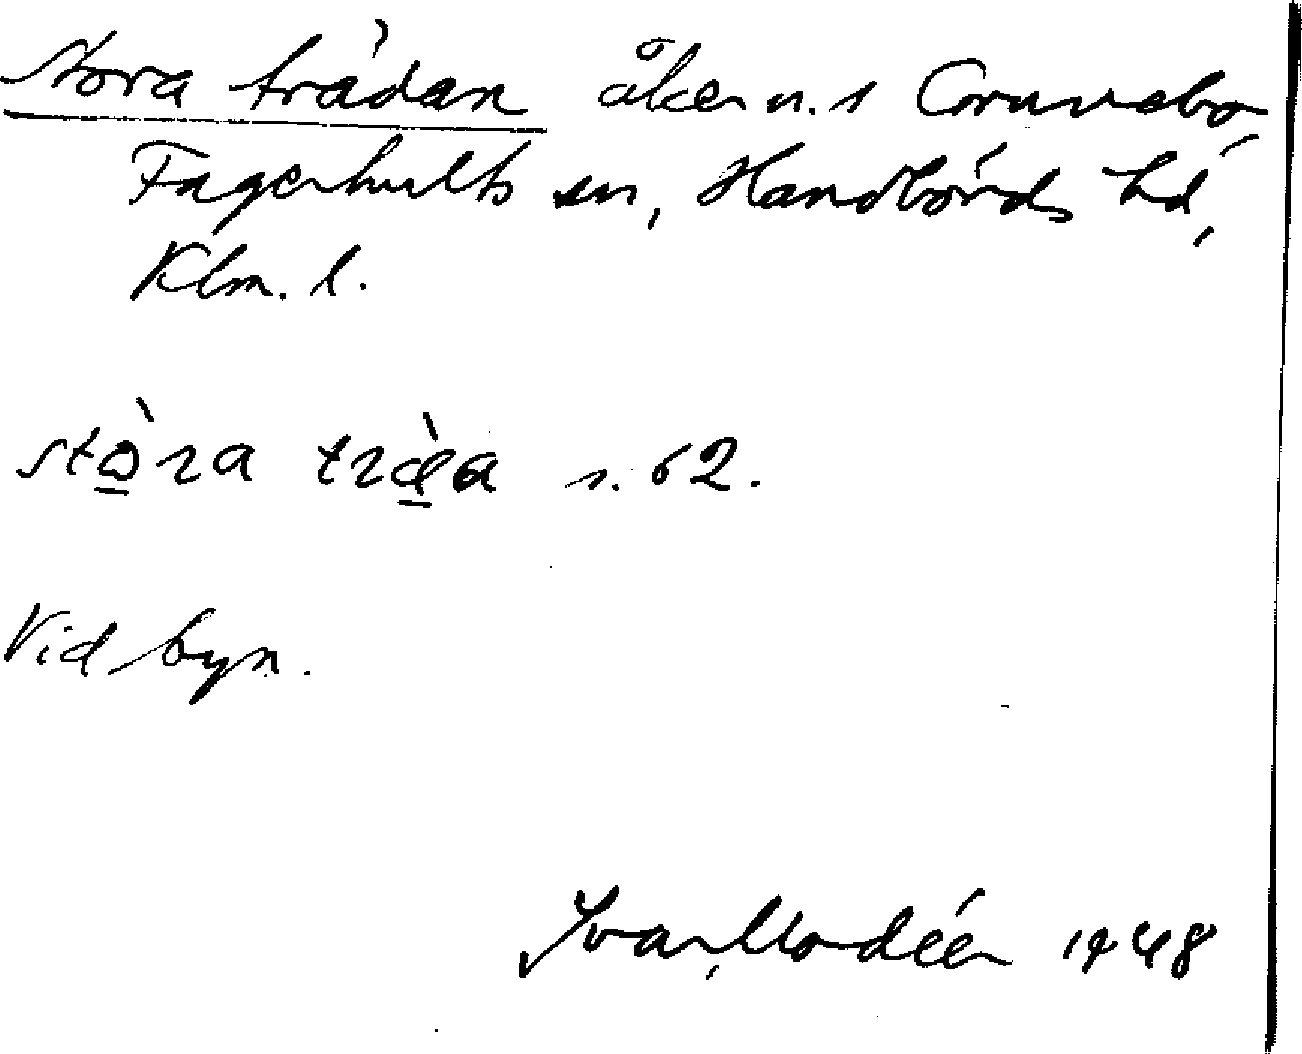 Stora trädan åker n. 1 Gruvebo,
Fagerhults sn, Handbörds hd,
Klm. l.
stò̠ra træ̠̀a s. 62.
Vid byn.
Ivar Modéer 1948